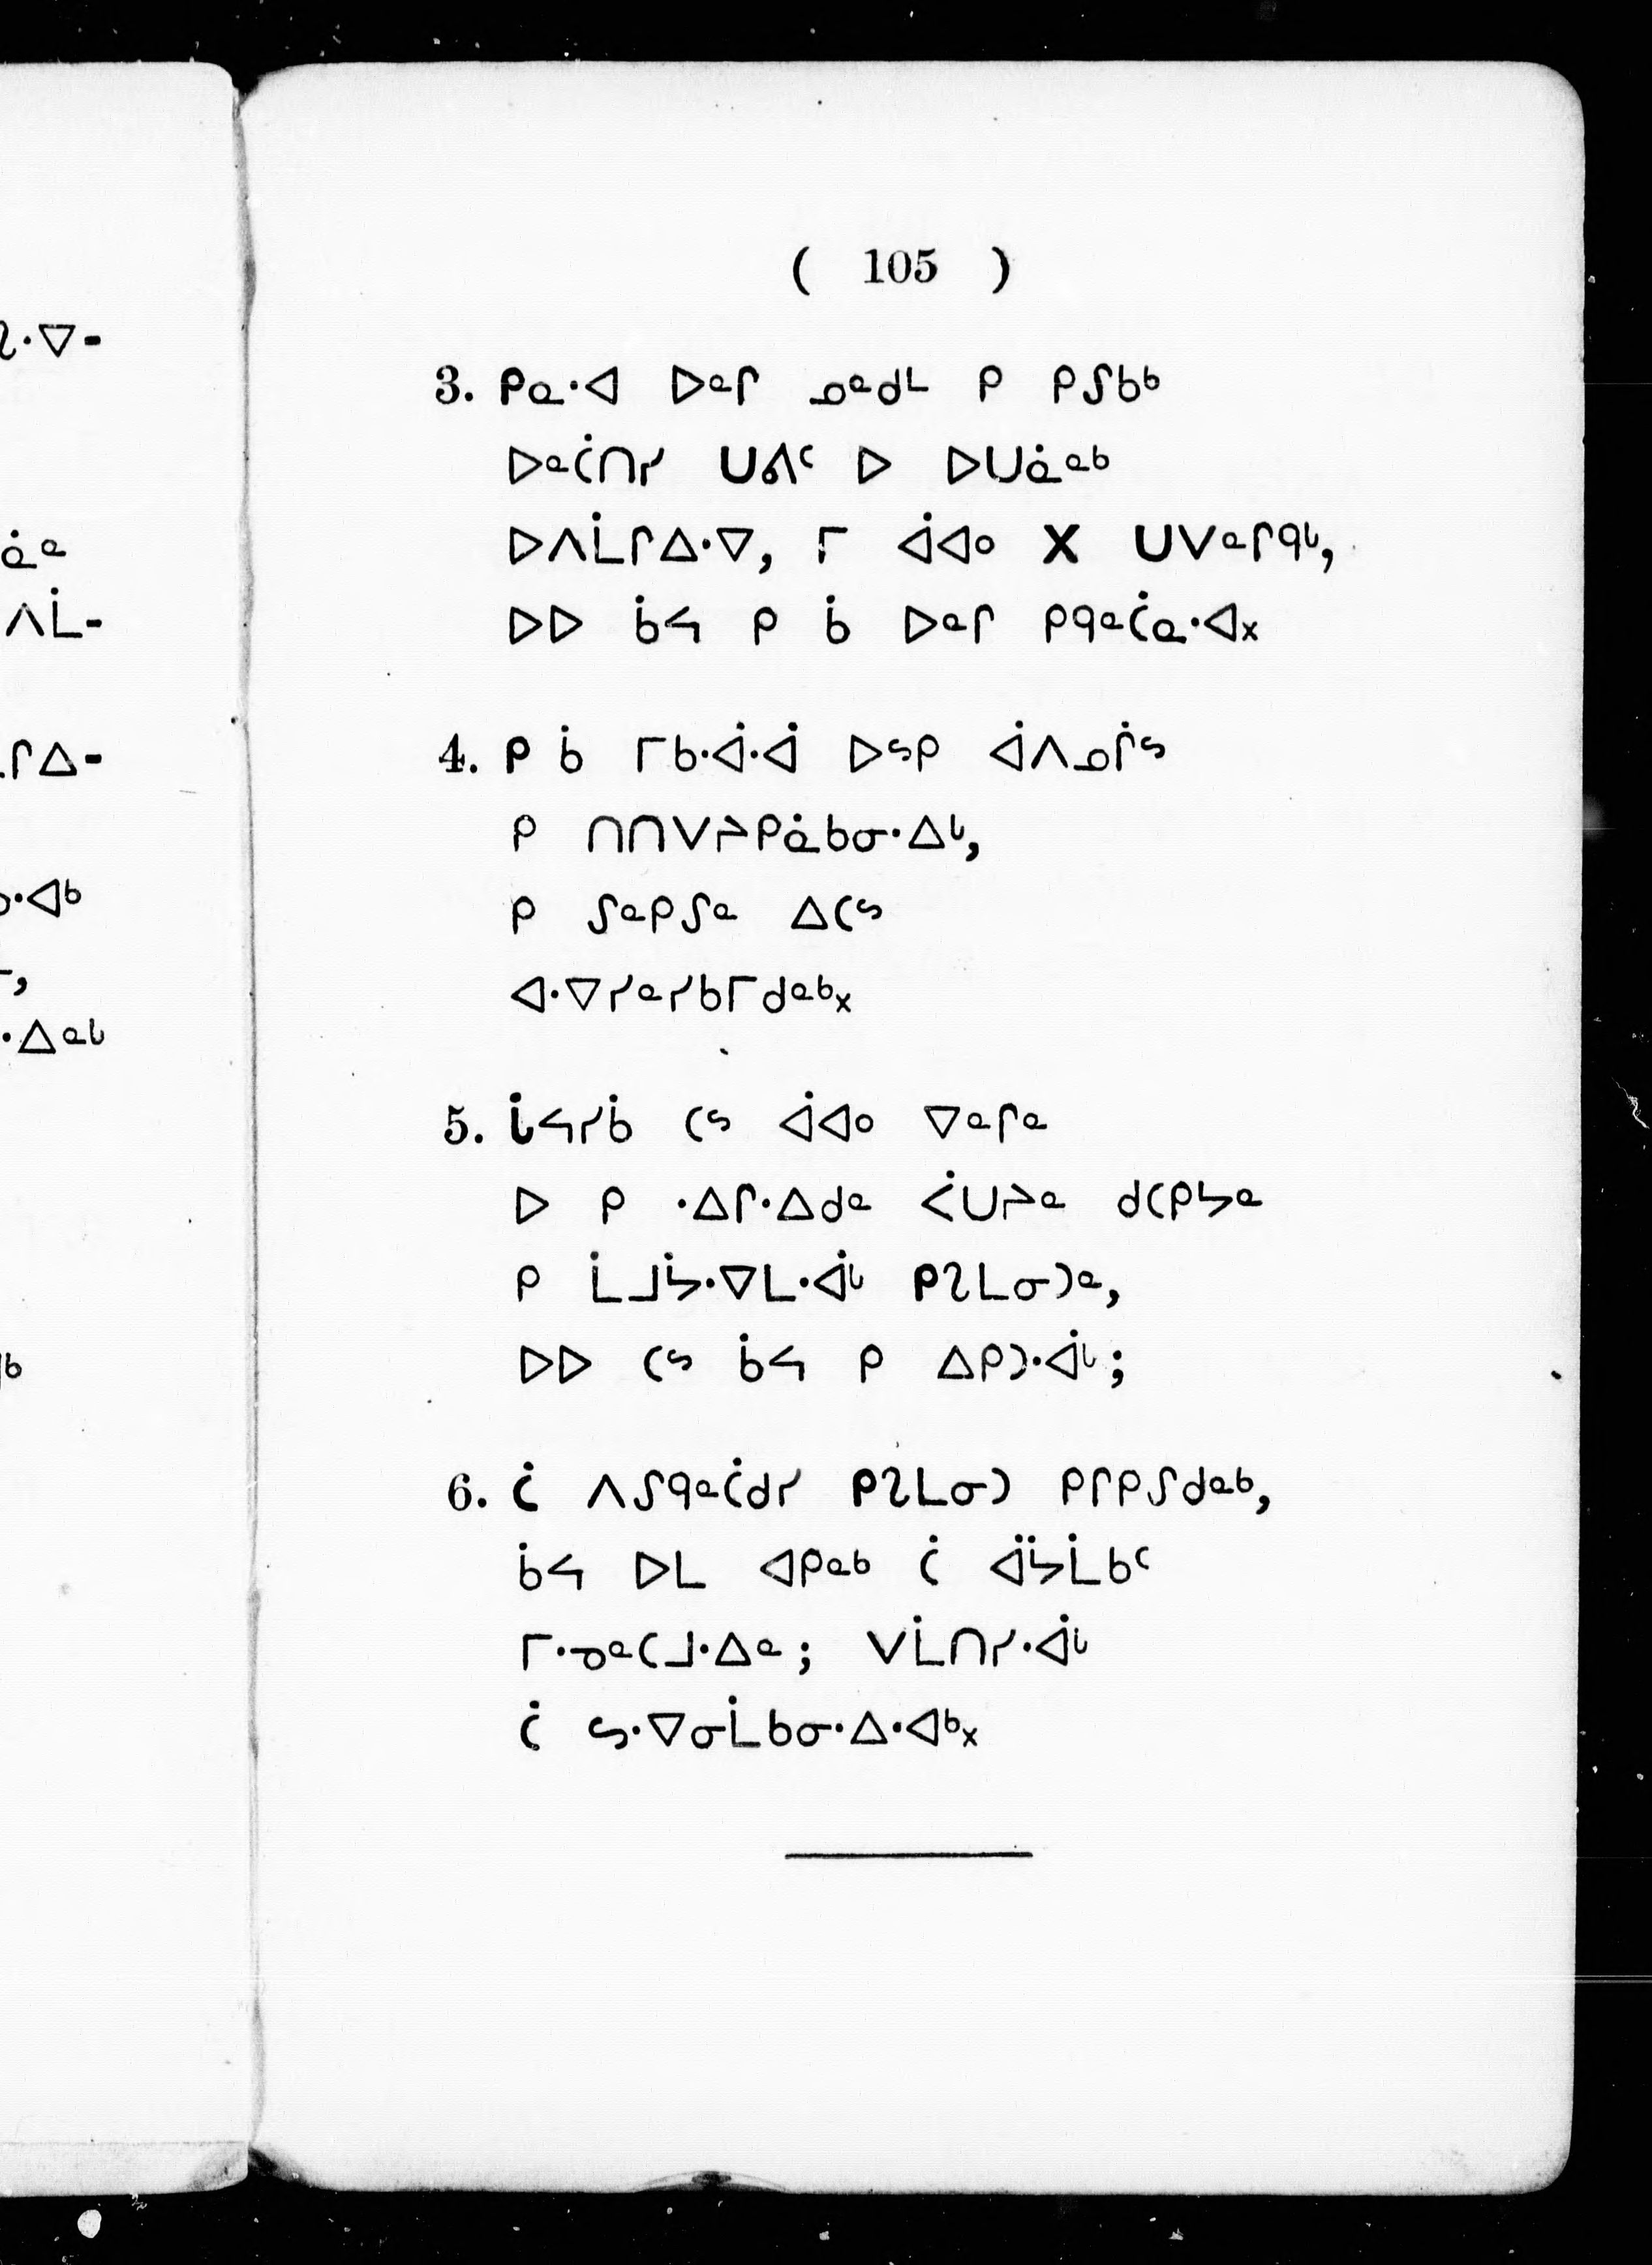 ( 105 )
3. ᑭᓇᐧᐊ ᐅᓐᒋ ᓄᓐᑯᒻ ᑭ ᑭᔑᑲᒃ
ᐅᓐᑖᑎᓯ ᑌᕕᑦ ᐅ ᐅᑌᓈᓐᒃ
ᐅᐱᒫᒋᐃᐧᐁ, ᒥ ᐋᐊᐤ X ᑌᐯᓐᒋᑫᒡ,
ᐅᐅ ᑳᔭ ᑭ ᑳ ᐅᓐᒋ ᑭᑫᓐᑖᓇᐧᐊ᙮
4. ᑭ ᑳ ᒥᑲᐧᐋᐧᐋ ᐅᔅᑭ ᐋᐱᓄᒌᔅ
ᑭ ᑎᑎᐯᔨᑭᓈᑲᓂᐧᐃᒡ,
ᑭ ᔑᓐᑭᔑᓐ ᐃᑕᔅ
ᐊᐧᐁᓯᓐᓯᑲᒥᑯᓐᒃ᙮
5. ᒑᔭᓯᑳ ᑕᔅ ᐋᐊᐤ ᐁᓐᒋᓐ
ᐅ ᑭ ᐧᐃᒋᐧᐃᑯᓐ ᐹᑌᔨᓐ ᑯᑕᑭᔭᓐ
ᑭ ᒫᒧᔮᐧᐁᒪᐧᐋᒡ ᑭᔐᒪᓂᑐᓐ,
ᐅᐅ ᑕᔅ ᑳᔭ ᑭ ᐃᑭᑐᐧᐋᒡ;
6. ᑖ ᐱᔑᑫᓐᑖᑯᓯ ᑭᔐᒪᓂᑐ ᑭᒋᑭᔑᑯᓐᒃ,
ᑳᔭ ᐅᒪ ᐊᑭᓐᒃ ᑖ ᐋᔮᒪᑲᑦ
ᒥᐧᓄᓐᑕᒧᐧᐃᓐ; ᐯᒫᑎᓯᐧᐋᒡ
ᑖ ᔕᐧᐁᓂᒫᑲᓂᐧᐃᐧᐊᒃ᙮